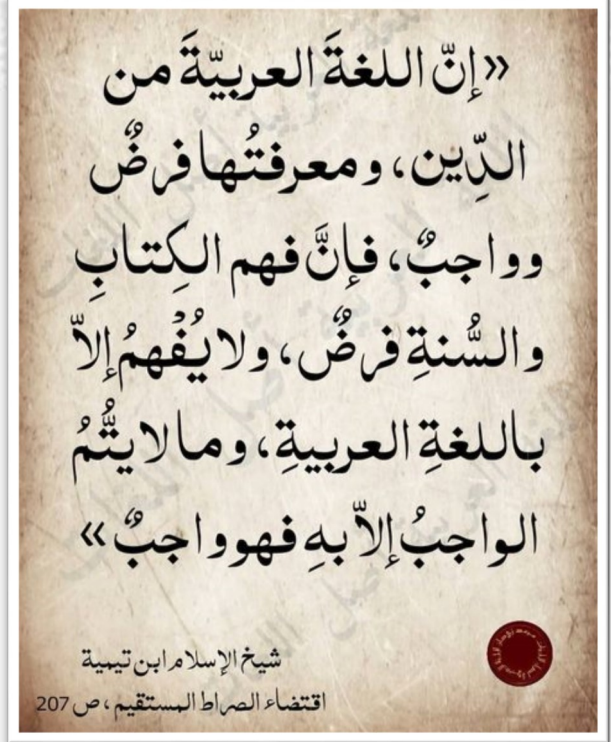 «إنّ اللغةَ العربيّةَ من
الدِّين، ومعرفتُها فرضٌ
وواجبٌ، فإنَّ فهم الكِتابِ
والسُّنةِ فرضٌ، ولا يُفْهمُ إلاّ
باللغةِ العربيةِ، وما لا يتُّمُ
الواجبُ إلاّ بهِ فهو واجبٌ»
شيخ الإسلام ابن تيمية
اقتضاء الصراط المستقيم، ص 207